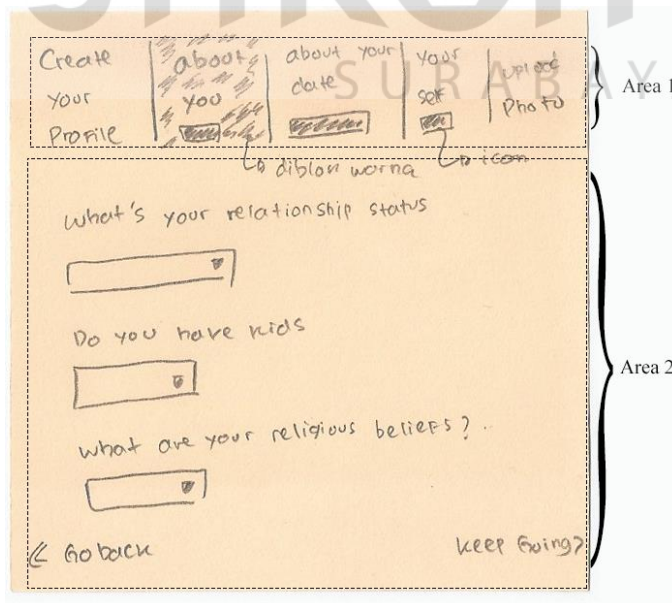 SURABAYA
Create
your
Profile
about
you
about your
date
your
self
upload
Photo
Area 1
diblok warna
icon
what's your relationship status
Do you have kids
what are your religious beliefs?
Go back
Keep Going?
Area 2